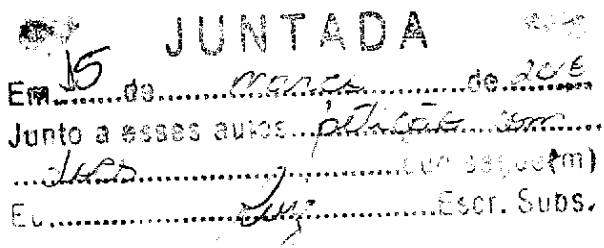 JUNTADA
Em 15 de março de
Junto a esses autos petição em
que segue(m)
Eu Escr. Subs.